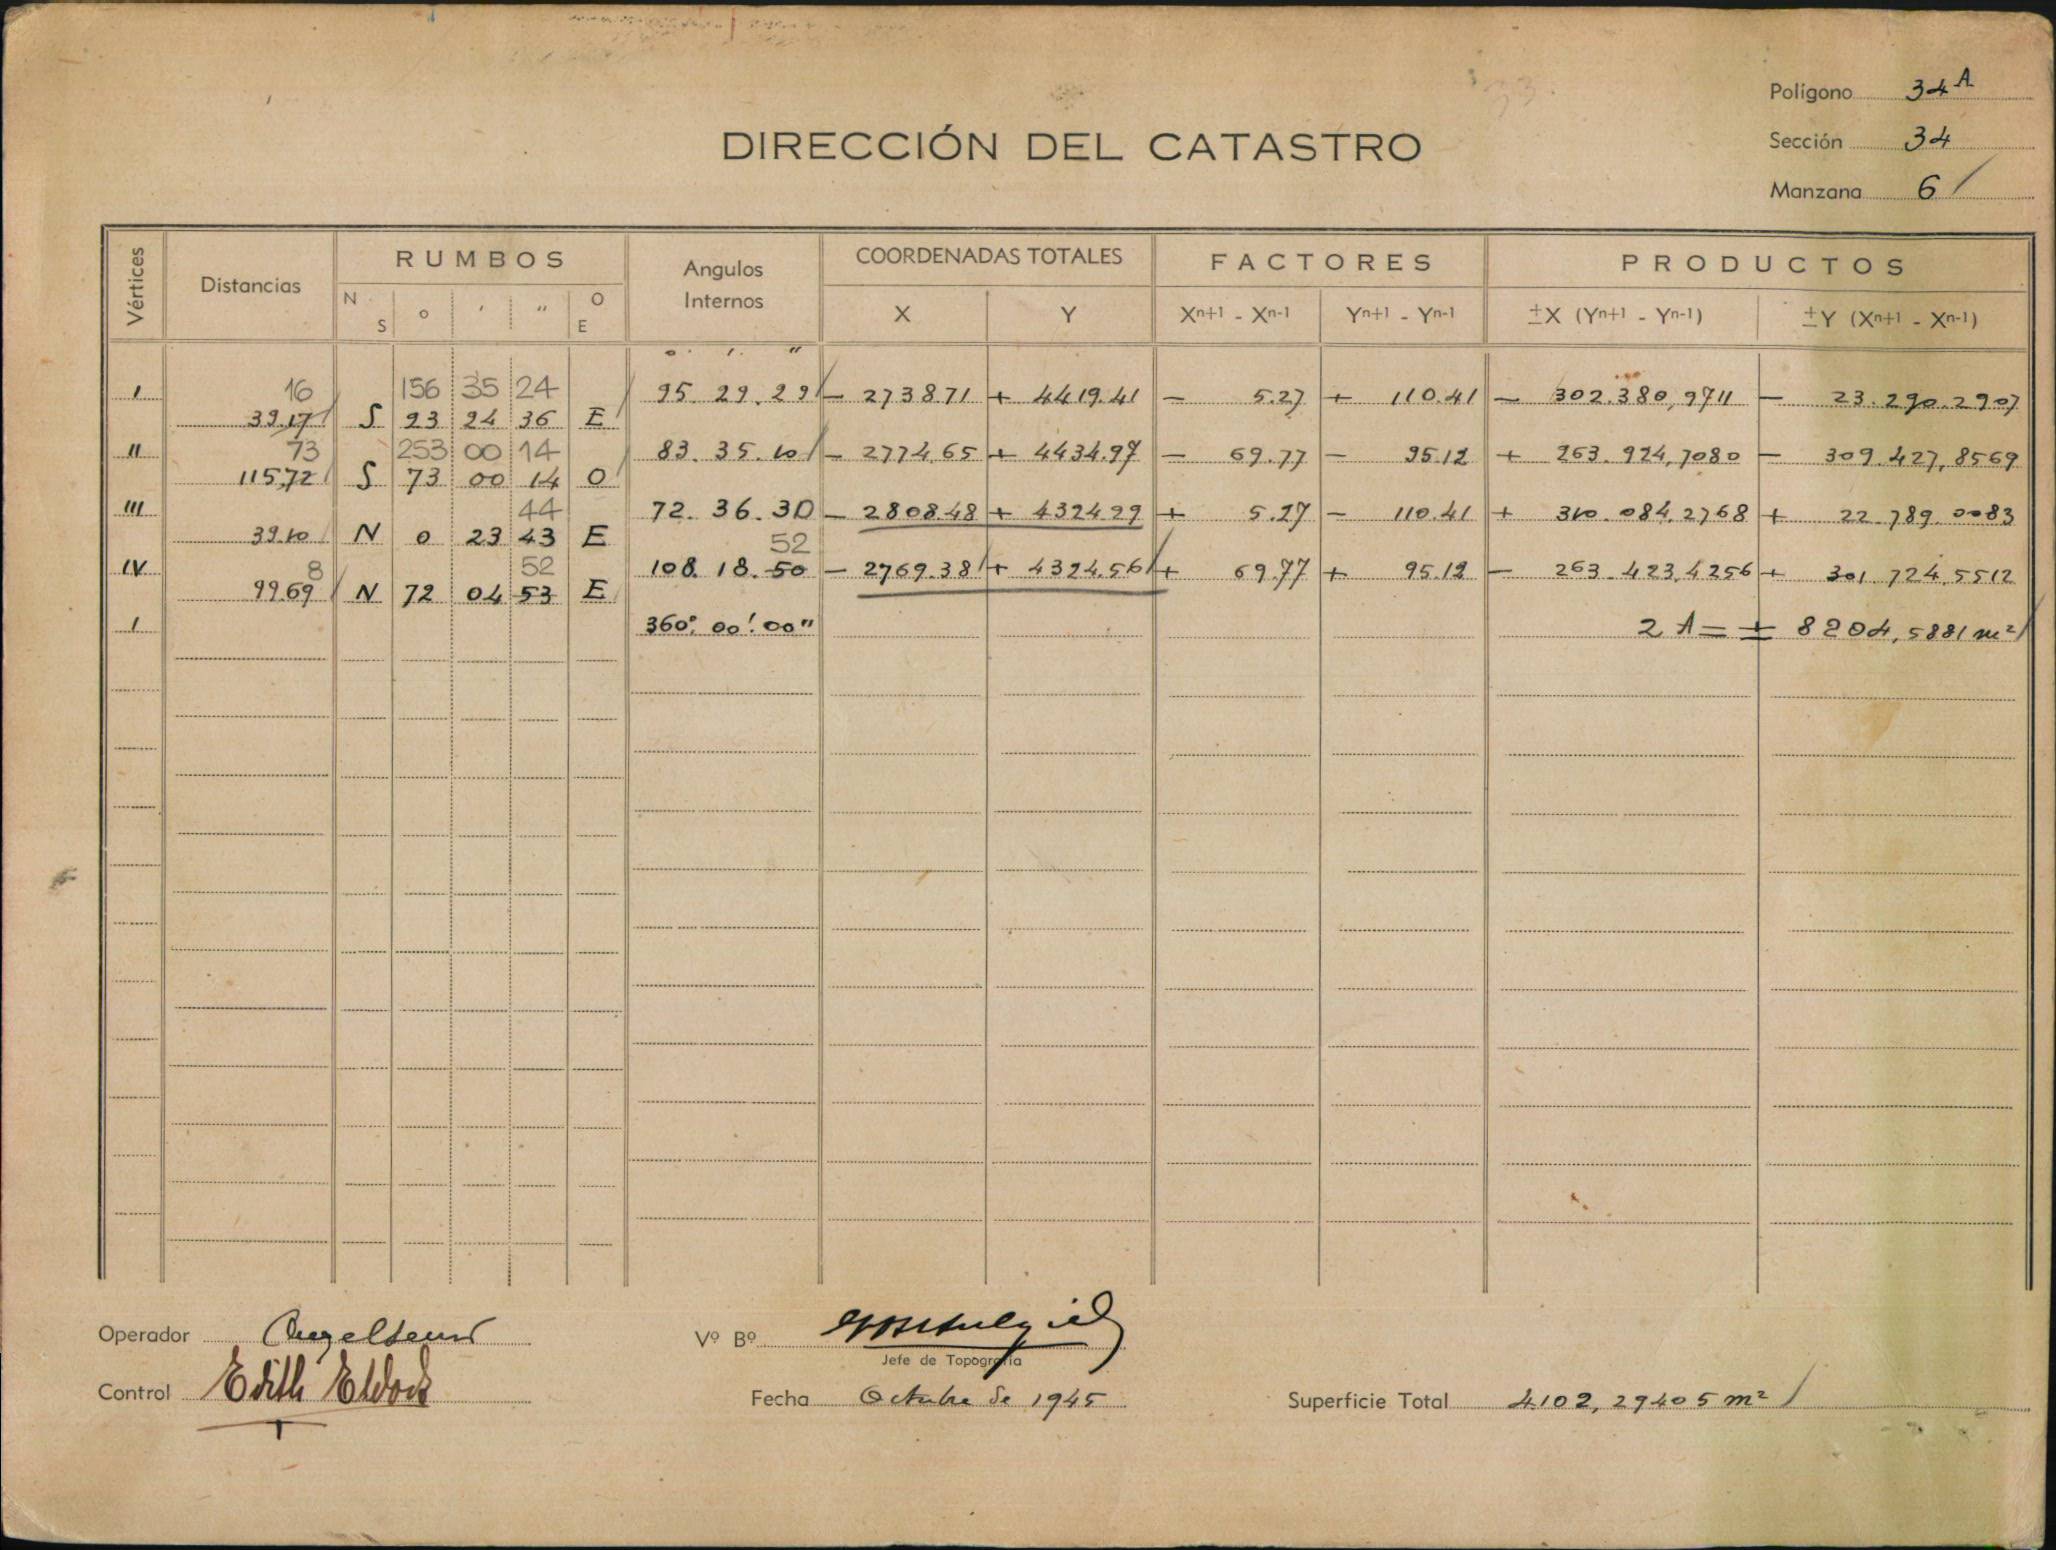 Polígono 34 A
DIRECCIÓN DEL CATASTRO
Sección 34
Manzana 6
Vértices Distancias RUMBOS Angulos Internos COORDENADAS TOTALES FACTORES PRODUCTOS
N S o ' " O E X Y Xn+1 - Xn-1 Yn+1 - Yn-1 ±X (Yn+1 - Yn-1) ±Y (Xn+1 - Xn-1)
o ' "
16 156 35 24
I 95. 29. 29 - 2738.71 + 4419.41 - 5.27 + 110.41 - 302.380,9711 - 23.290.2907
39.17 S 23 24 36 E
73 253 00 14
II 83. 35. 10 - 2774.65 + 4434.97 - 69.77 - 95.12 + 263.924,7080 - 309.427,8569
115,72 S 73 00 14 O
44
III 72. 36. 30 - 2808.48 + 4324.29 + 5.27 - 110.41 + 310.084,2768 + 22.789.0083
39.10 N 0 23 43 E
52
8 52
IV 108. 18. 50 - 2769.38 + 4324.56 + 69.77 + 95.12 - 263.423,4256 + 301.724,5512
99.69 N 72 04 53 E
I 360°. 00'. 00" 2 A = + 8204,5881 m²
Operador
Vº Bº
Jefe de Topografía
Control Edith
Fecha Octubre de 1945
Superficie Total 4.102,29405 m²